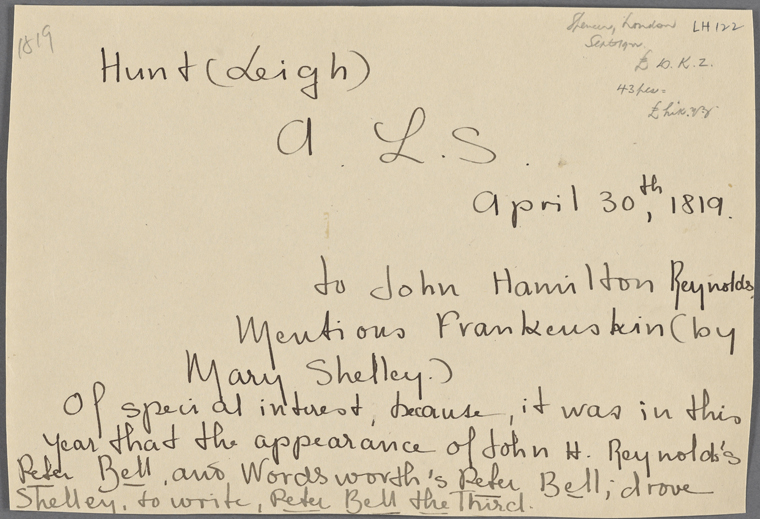 1819
Spencer, London LH 122
43
Hunt (Leigh)
A. L. S.
April 30th, 1819.
to John Hamilton Reynolds
Mentions Frankenstein (by
Mary Shelley.)
Of special interest, because, it was in this
year that the appearance of John H. Reynolds's
Peter Bell, and Wordsworth's Peter Bell; drove
Shelley, to write, Peter Bell the Third.